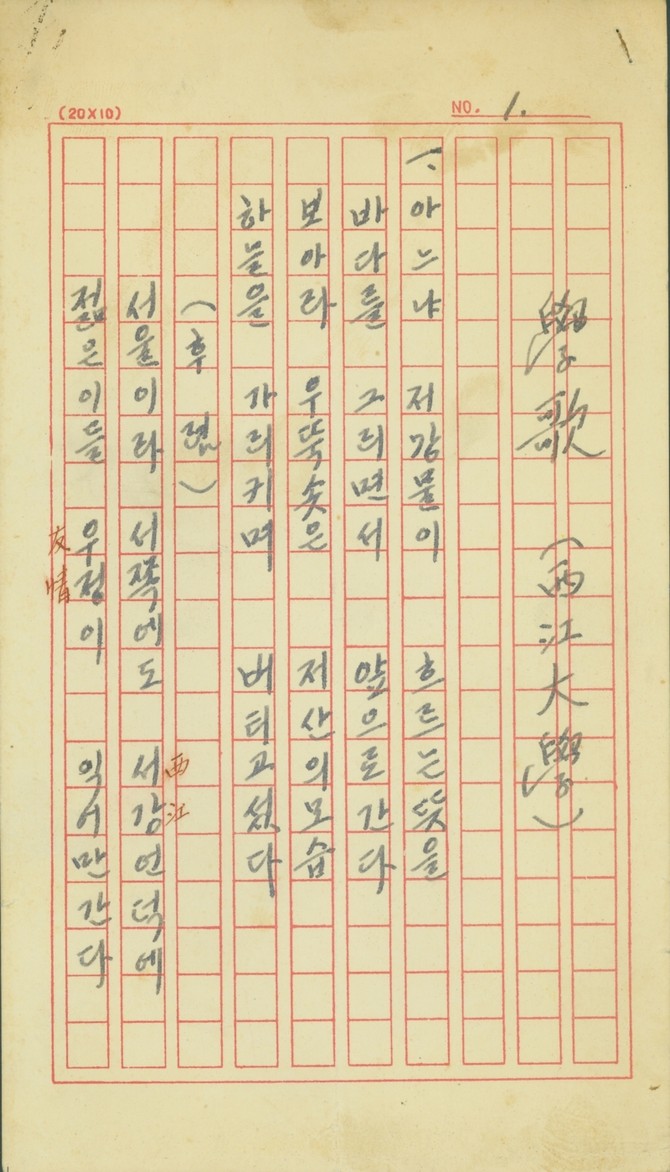 (20X10)
NO. 1.
學歌 (西江大學)
1. 아느냐 저강물이 흐르는 뜻을
바다를 그리면서 앞으로 간다
보아라 우뚝솟은 저산의 모습
하늘을 가리키며 버티고 섰다
(후렴)
서울이라 서쪽에도 서강언덕에
西江
젊은이들 우정이 익어만 간다
友情